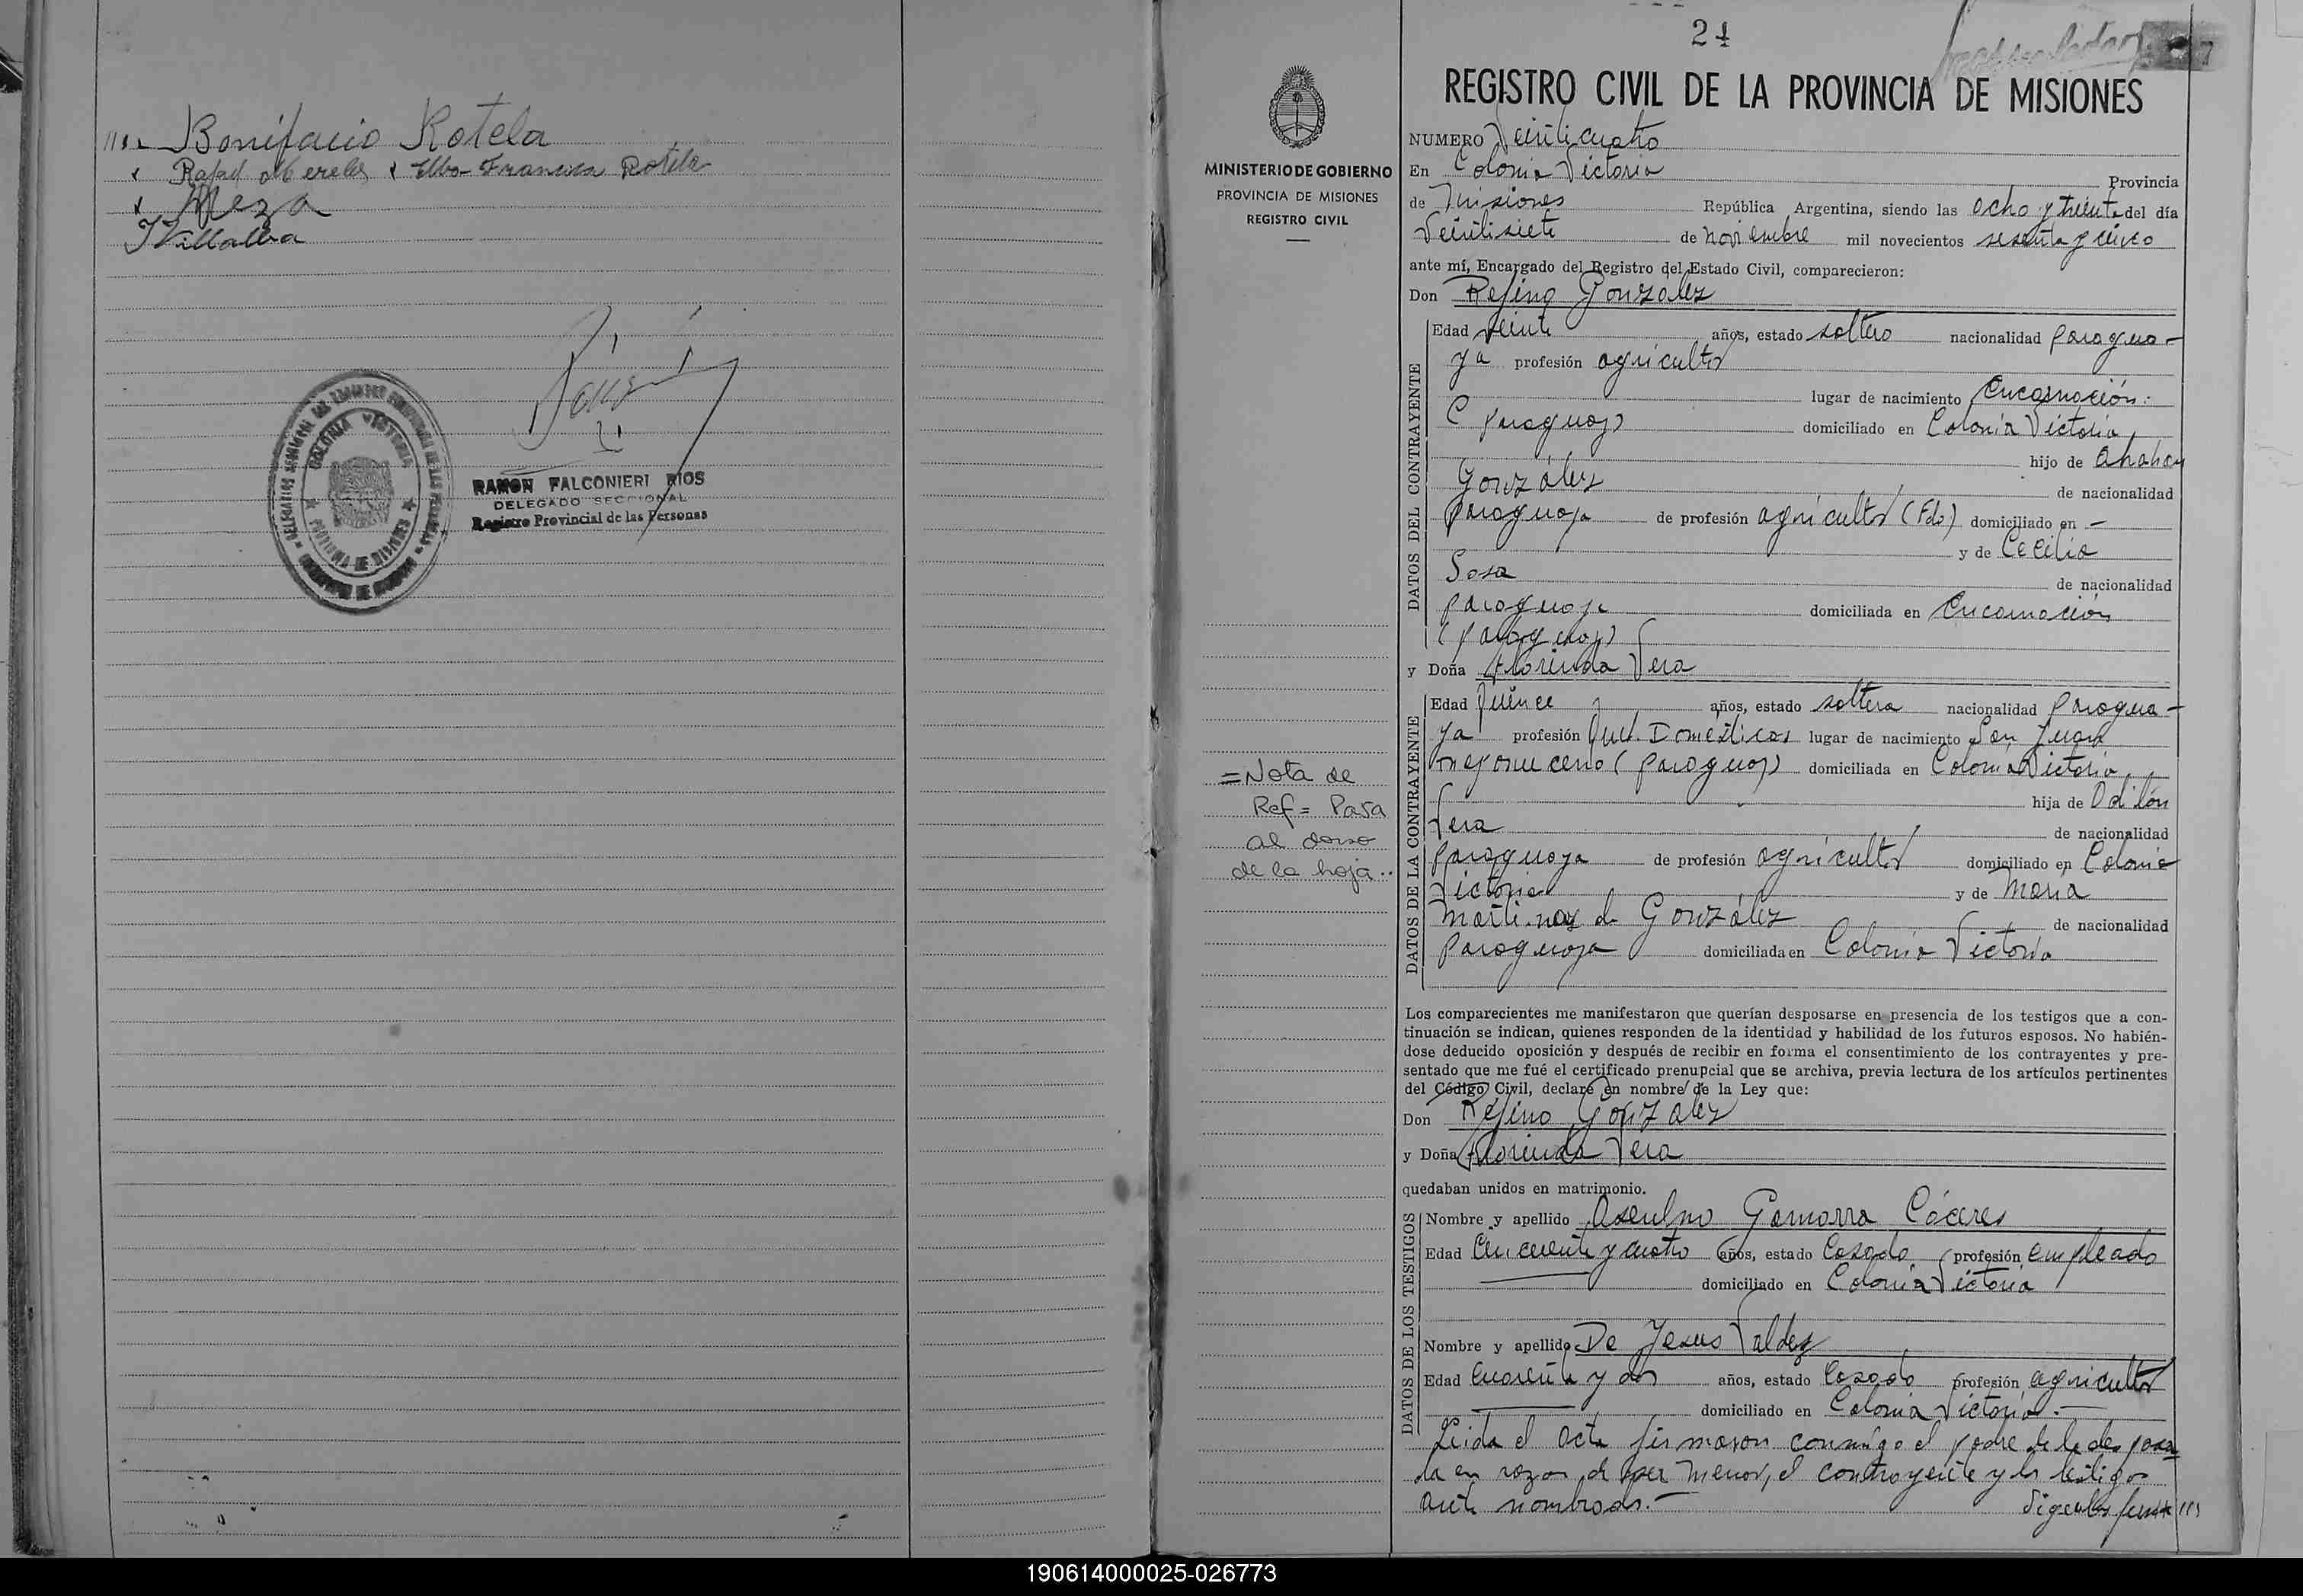 Bonifacio Rotela
Rafael Mereles Elba Francisca Rotela
Meza
J Villalba
COLONIA VICTORIA
PROVINCIA DE MISIONES
RAMON FALCONIERI RIOS
DELEGADO SECCIONAL
Registro Provincial de las Personas
24
REGISTRO CIVIL DE LA PROVINCIA DE MISIONES
MINISTERIO DE GOBIERNO
PROVINCIA DE MISIONES
REGISTRO CIVIL
=Nota de
Ref= Pasa
al dorso
de la hoja..
NUMERO Veinticuatro
En Colonia Victoria Provincia
de Misiones República Argentina, siendo las ocho y treinta del día
Veintisiete de noviembre mil novecientos sesenta y cinco
ante mí, Encargado del Registro del Estado Civil, comparecieron:
Don Refino González
DATOS DEL CONTRAYENTE
Edad veinte años, estado soltero nacionalidad paragua-
ya profesión agricultor
lugar de nacimiento Encarnación:
(Paraguay) domiciliado en Colonia Victoria,
hijo de
González de nacionalidad
paraguaya de profesión agricultor (Fdo) domiciliado en -
y de Cecilia
Sosa de nacionalidad
paraguaya domiciliada en Encarnación
(Paraguay)
y Doña Florinda Vera
DATOS DE LA CONTRAYENTE
Edad quince años, estado soltera nacionalidad paragua-
ya profesión Queh. Domésticos lugar de nacimiento San Juan
Nepomuceno (Paraguay) domiciliada en Colonia Victoria,
hija de Odilón
Vera de nacionalidad
paraguaya de profesión agricultor domiciliado en Colonia
Victoria y de María
Martínez de González de nacionalidad
paraguaya domiciliada en Colonia Victoria
Los comparecientes me manifestaron que querían desposarse en presencia de los testigos que a con-
tinuación se indican, quienes responden de la identidad y habilidad de los futuros esposos. No habién-
dose deducido oposición y después de recibir en forma el consentimiento de los contrayentes y pre-
sentado que me fué el certificado prenupcial que se archiva, previa lectura de los artículos pertinentes
del Código Civil, declaré en nombre de la Ley que:
Don Refino González
y Doña Florinda Vera
quedaban unidos en matrimonio.
DATOS DE LOS TESTIGOS
Nombre y apellido Gamarra Cáceres
Edad Cincuenta y cuatro años, estado Casado profesión empleado
domiciliado en Colonia Victoria
Nombre y apellido De Jesus Valdez
Edad Cuarenta y dos años, estado Casado profesión agricultor
domiciliado en Colonia Victoria.-
Leida el acta firmaron conmigo el padre de la desposa
da en razón de ser menor, el contrayente y los testigos
ante nombrados.-
Siguen las firmas ///
190614000025-026773